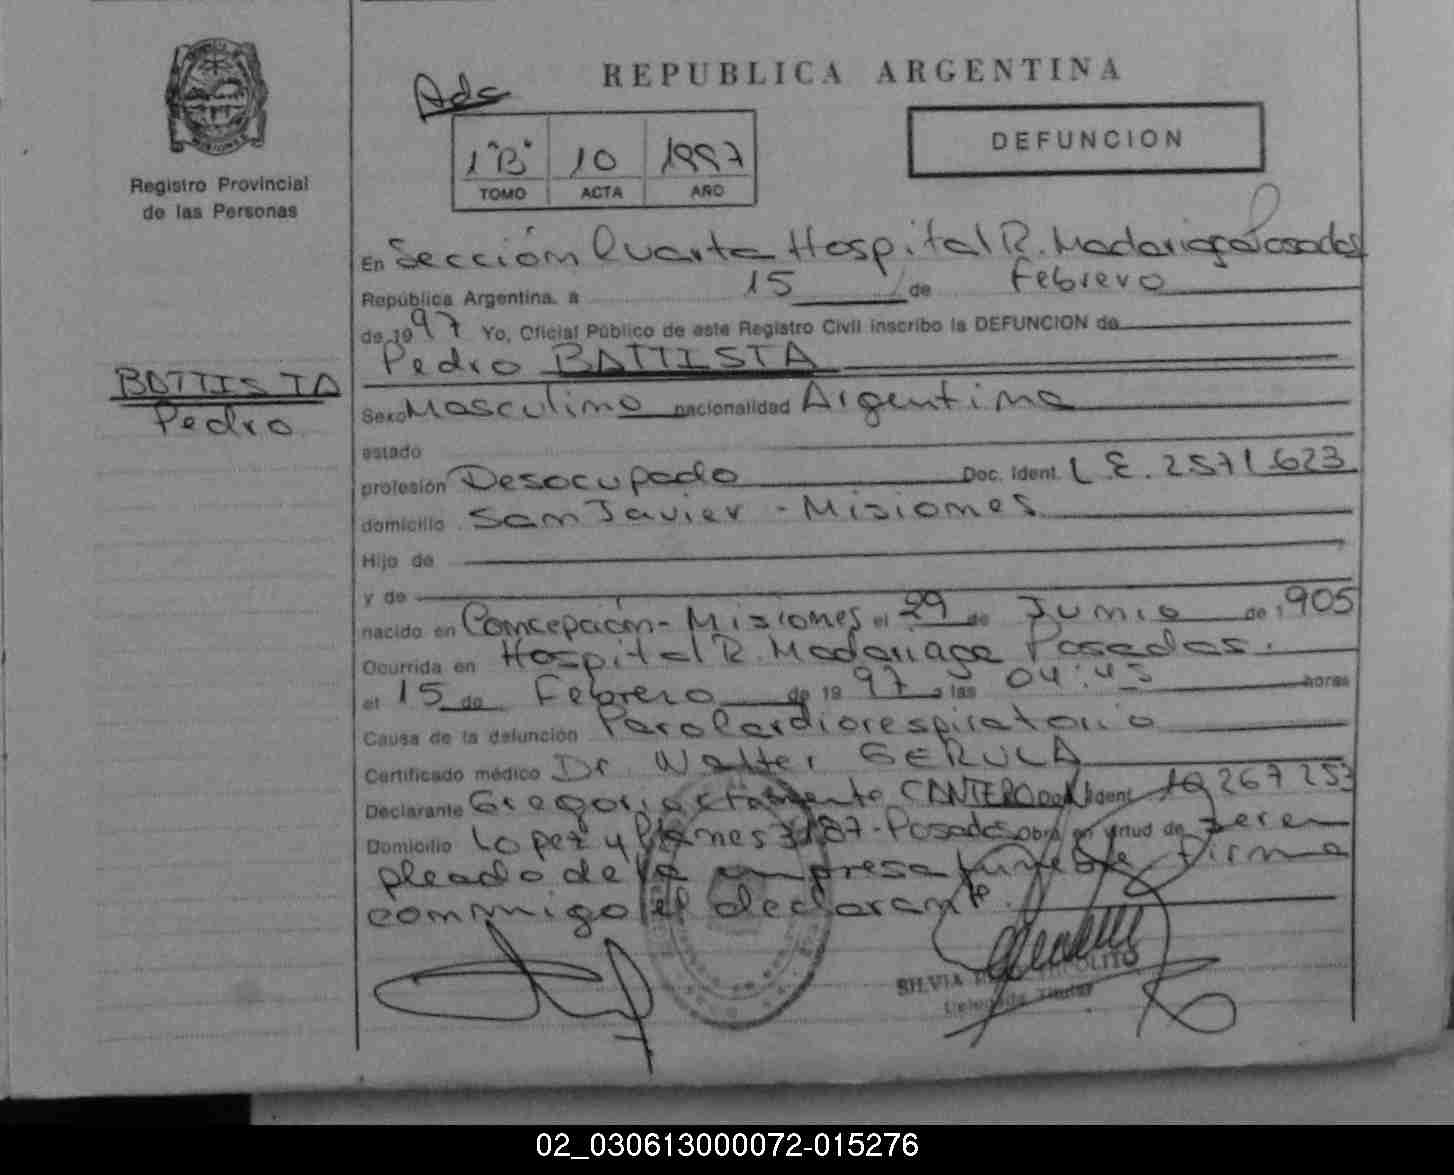 REPUBLICA ARGENTINA
Adc
DEFUNCION
1"B" 10 1997
TOMO ACTA AÑO
Registro Provincial
de las Personas
En Sección Cuarta Hospital R. Madariaga Posadas
República Argentina, a 15 de Febrero
de 1997 Yo, Oficial Público de este Registro Civil inscribo la DEFUNCION de
Pedro BATTISTA
BATTISTA
Pedro
Sexo Masculino nacionalidad Argentina
estado
profesión Desocupado Doc. Ident. L.E. 2571.623
domicilio San Javier - Misiones
Hijo de
y de
nacido en Concepción - Misiones el 29 de Junio de 1905
Ocurrida en Hospital R. Madariaga Posadas.
el 15 de Febrero de 1997 a las 04:45 horas
Causa de la defunción Paro Cardiorespiratorio
Certificado médico Dr. Walter GERULA
Declarante Gregorio CANTERO Doc. Ident. 267 253
Domicilio Lopez y Planes 3187 - Posadas obra en virtud de ser em
pleado de la empresa funebre Firma
conmigo el declarante.
SILVIA HIPOLITO
Delegada Titular
02_030613000072-015276